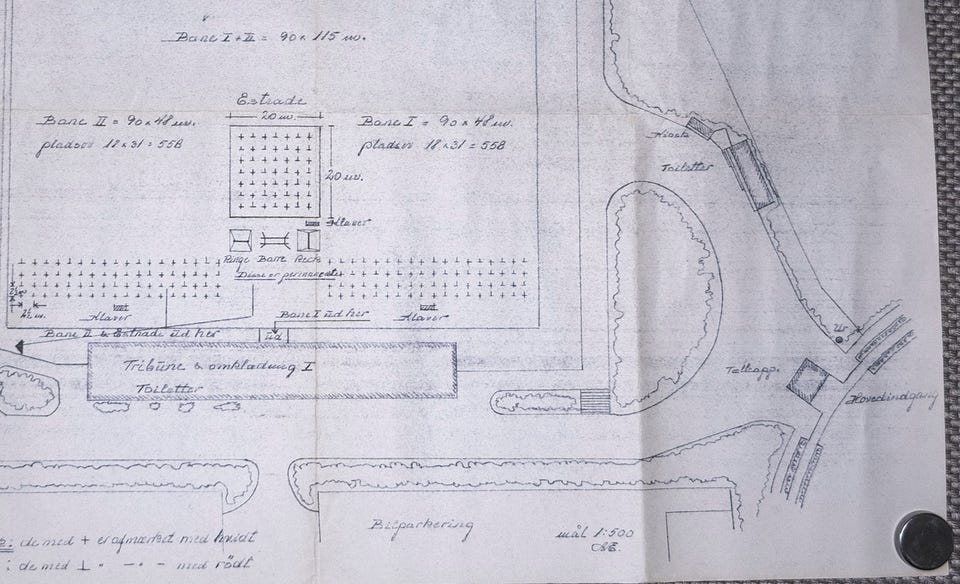 Bane I + II = 90 x 115 m.
Estrade
20 m.
Bane II = 90 x 48 m.
pladser 18 x 31 = 558
Bane I = 90 x 48 m.
pladser 18 x 31 = 558
20 m.
Kiosk
Toiletter
Klaver
Ringe Barre Reck
Disse er permanente
2½
2½ m.
Klaver
Klaver
Bane I ud her
Bane II & Estrade ud her
Ur
Tribüne & omklædning I
Toiletter
Telt opp.
Hovedindgang
Bilparkering
mål 1:500
: de med + er afmærket med hvidt
: de med ⊥ " — " — med rödt